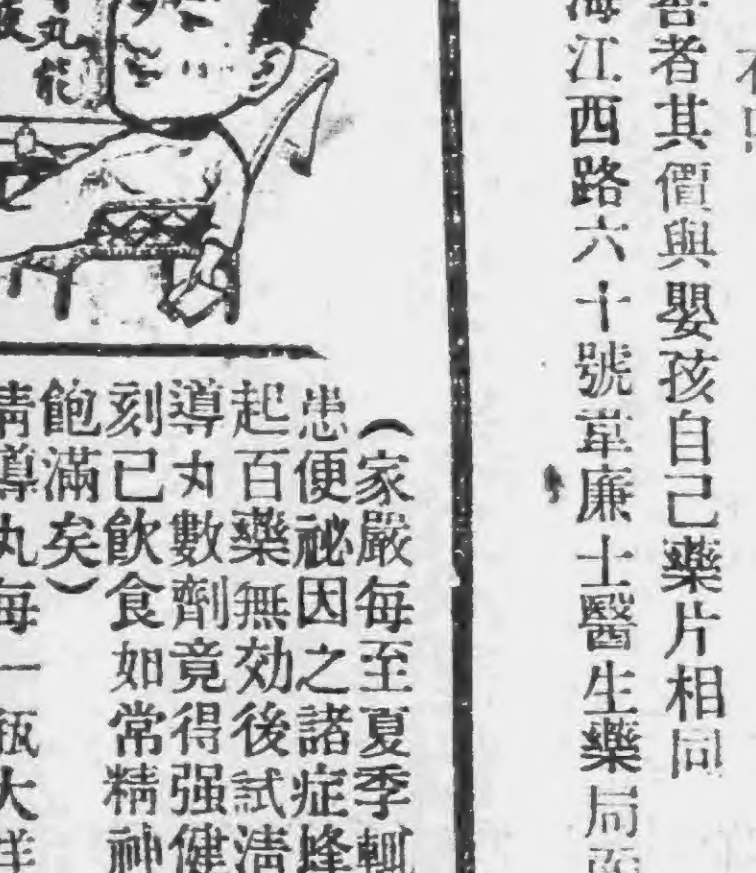 者其價與嬰孩自己藥片相同
江西路六十號韋廉士醫生藥局
（家嚴每至夏季輒
患便祕因之諸症蜂
起百藥無効後試清
導丸數劑竟得强健
刻已飲食如常精神
飽滿矣）
導丸每一瓶大洋
丸能